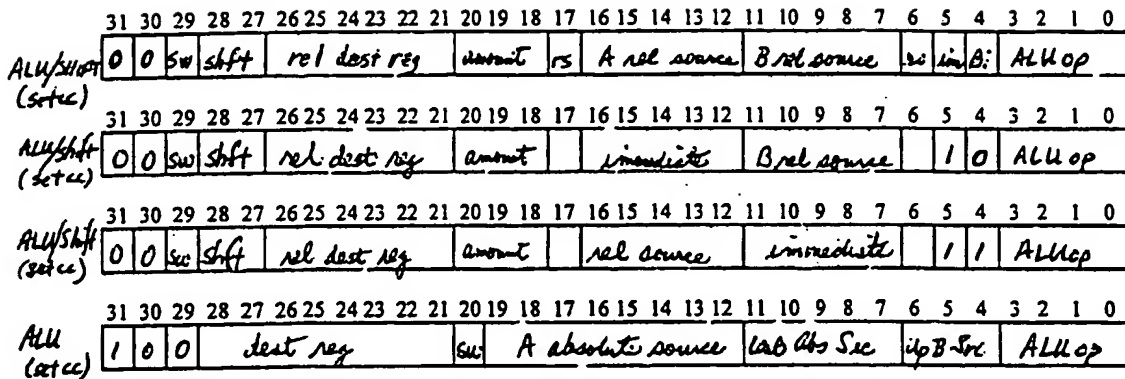 31 30 29 28 27 26 25 24 23 22 21 20 19 18 17 16 15 14 13 12 11 10 9 8 7 6 5 4 3 2 1 0
ALU/Shift 0 0 sw shft rel dest reg amount rs A rel source B rel source im Bi ALU op
(setcc)
31 30 29 28 27 26 25 24 23 22 21 20 19 18 17 16 15 14 13 12 11 10 9 8 7 6 5 4 3 2 1 0
ALU/Shft 0 0 sw Shft rel dest reg amount immediate B rel source 1 0 ALU op
(setcc)
31 30 29 28 27 26 25 24 23 22 21 20 19 18 17 16 15 14 13 12 11 10 9 8 7 6 5 4 3 2 1 0
ALU/Shft 0 0 Shft rel dest reg amount rel source immediate 1 1 ALU op
(setcc)
31 30 29 28 27 26 25 24 23 22 21 20 19 18 17 16 15 14 13 12 11 10 9 8 7 6 5 4 3 2 1 0
ALU 1 0 0 dest reg sw A absolute source Abs Src B Src ALU op
(setcc)